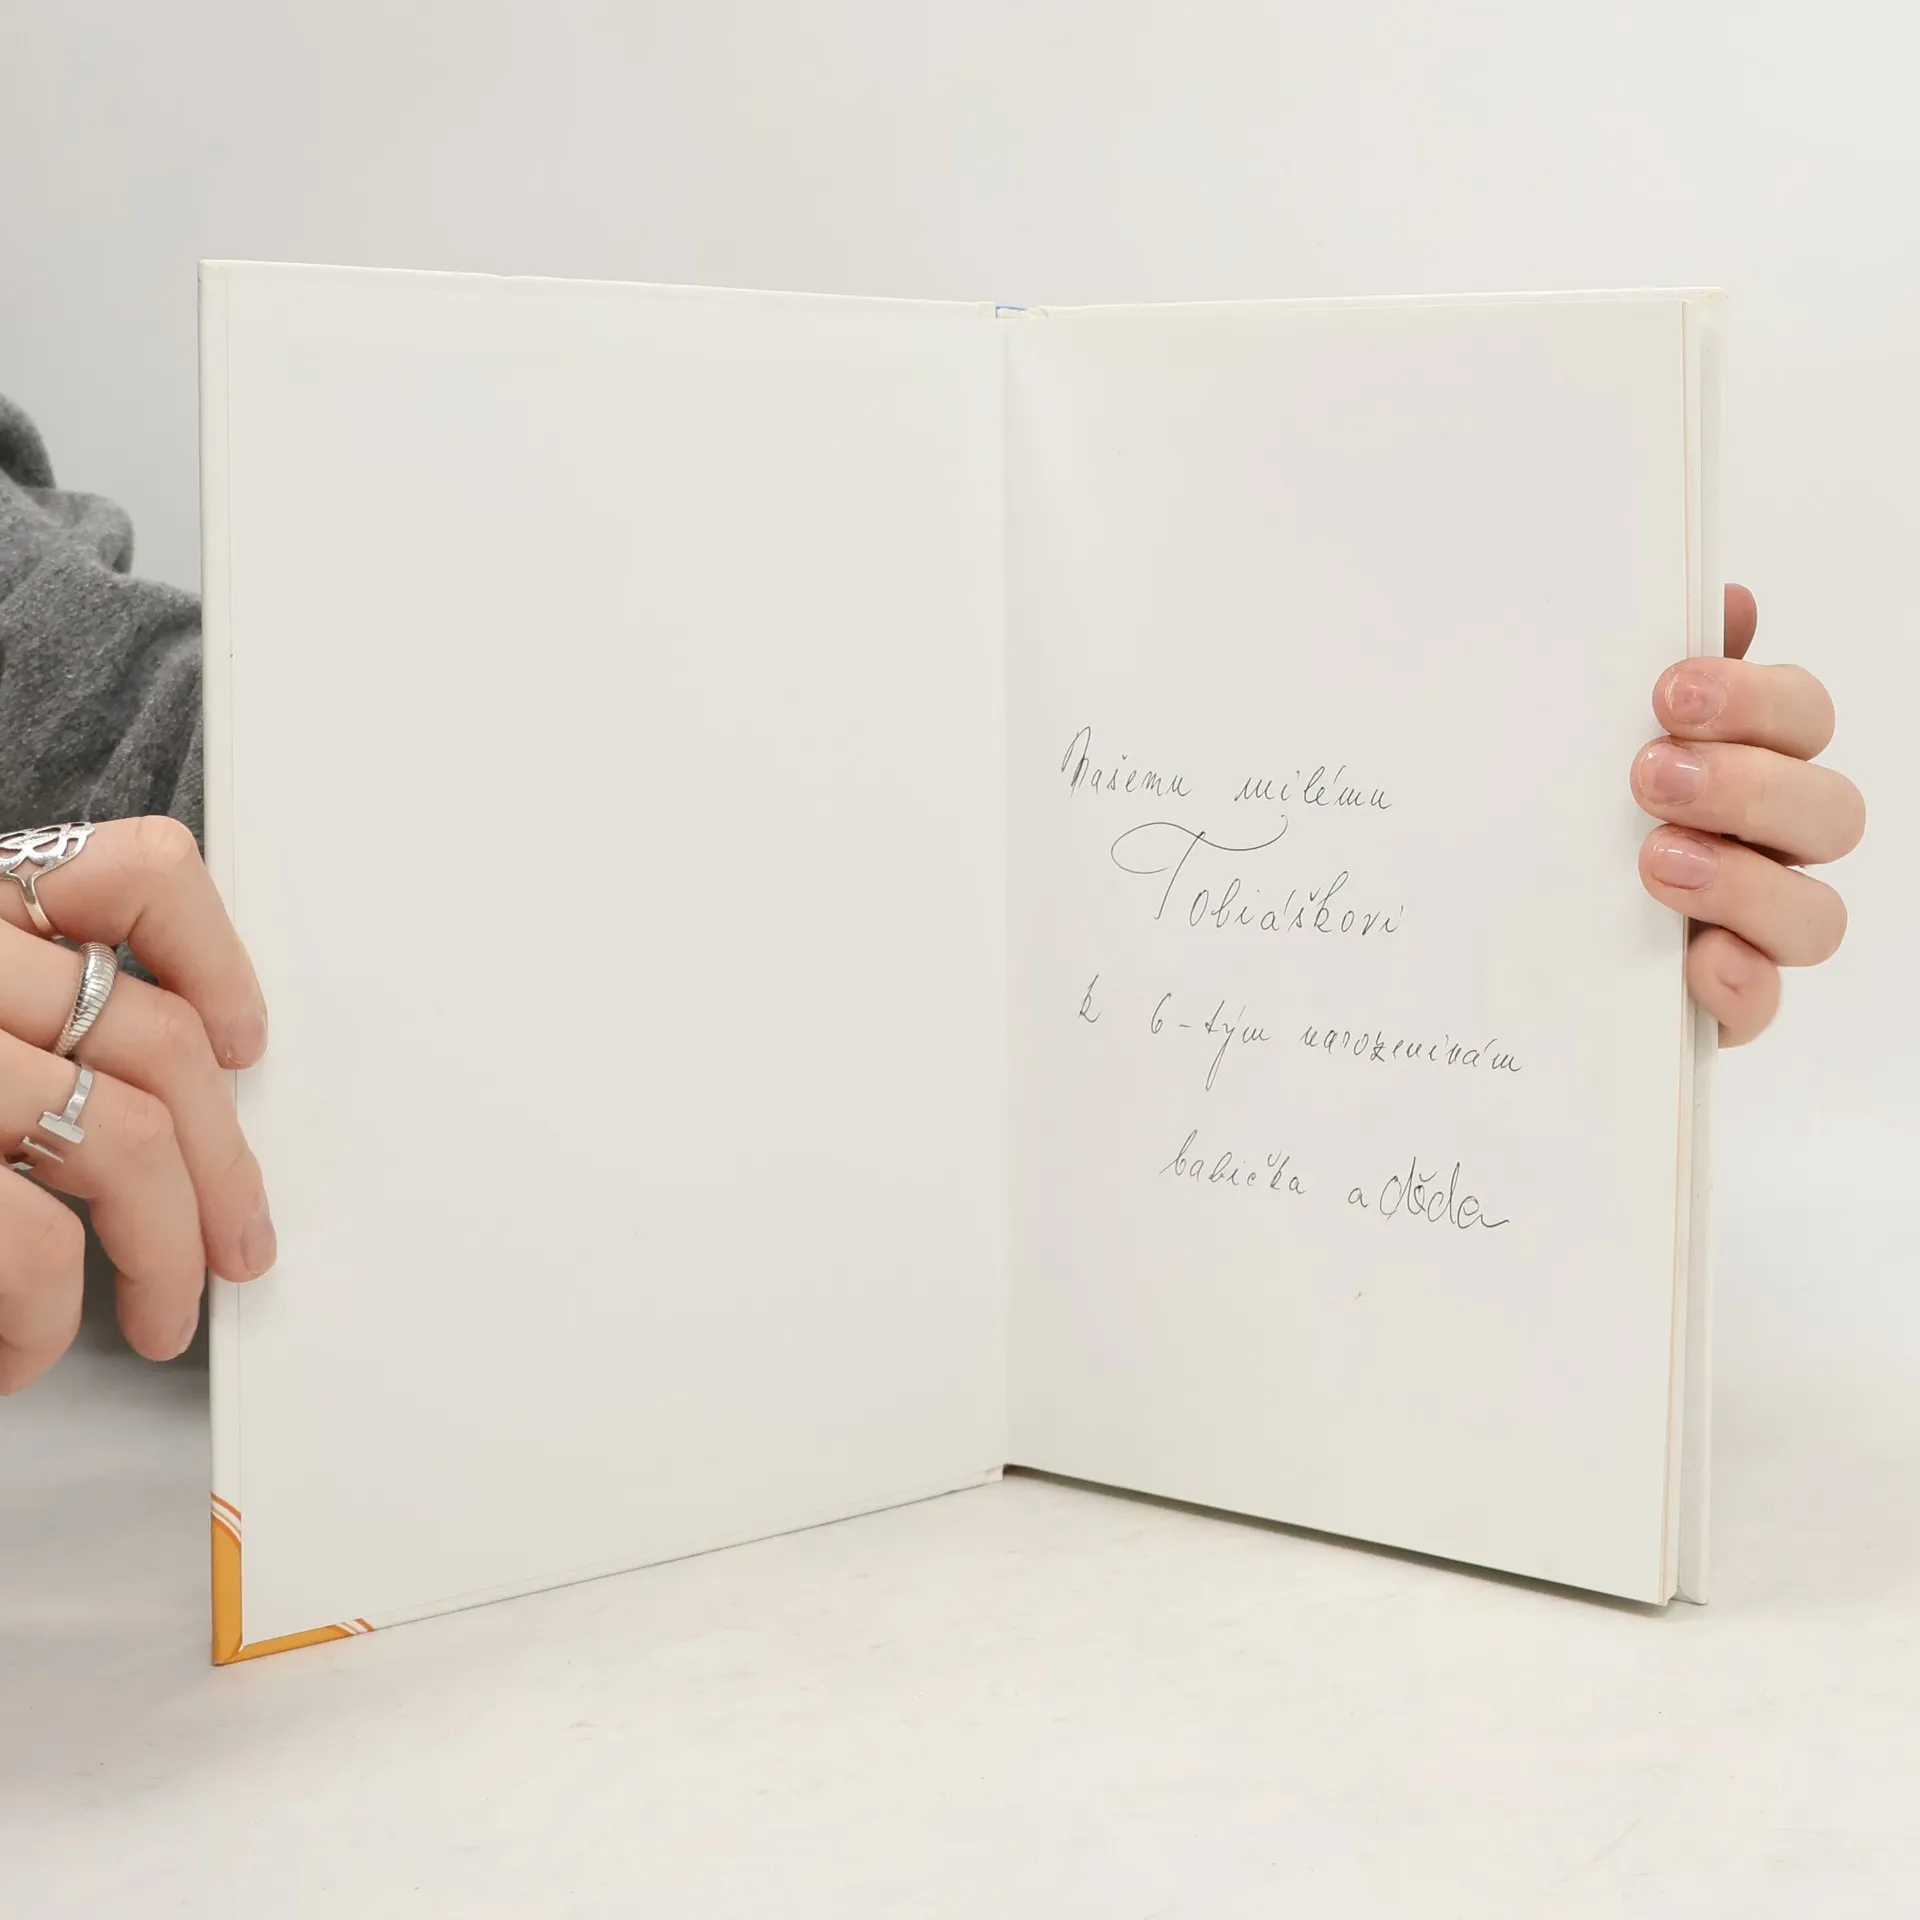 Našemu milému
Tobiáškovi
k 6-tým narozeninám
babička a děda